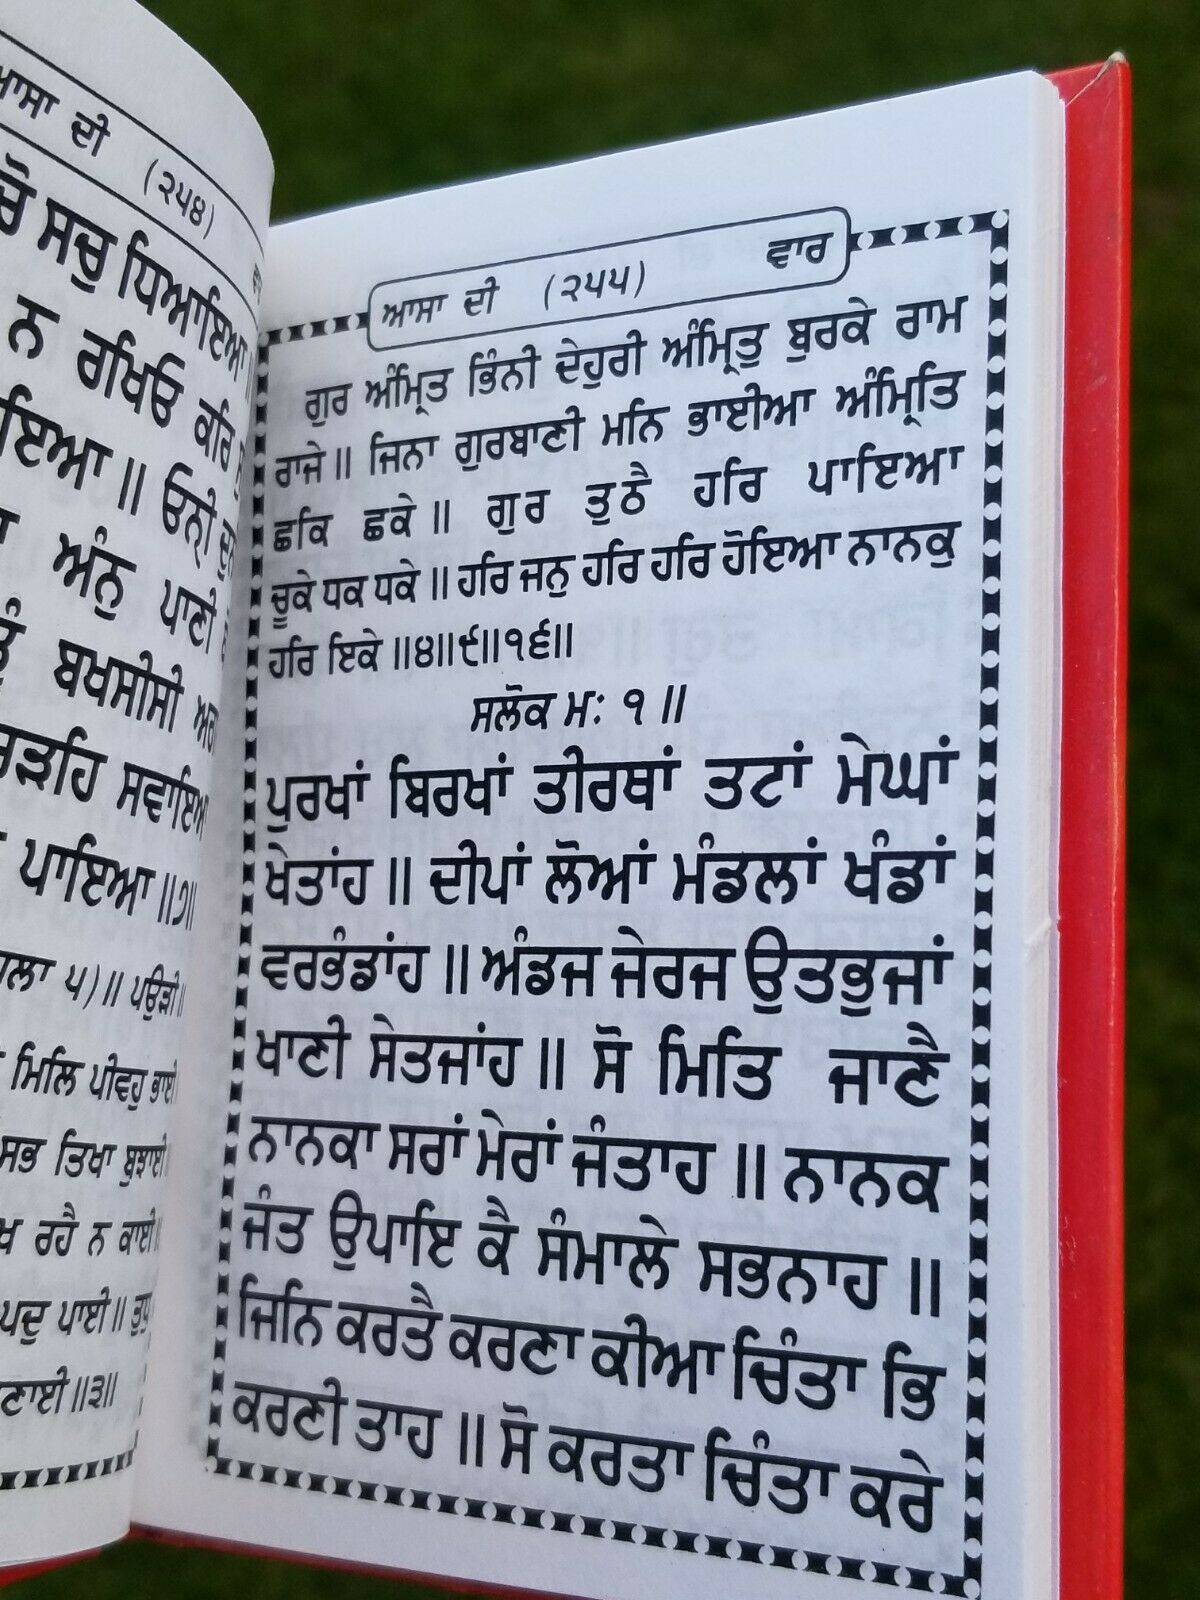 ਆਸਾ ਦੀ (੨੫੪)
ਸਚੁ ਧਿਆਇਆ ॥
ਨ ਰਖਿਓ ਕਰਿ
ਓਨ੍ਹੀ
ਅੰਨੁ ਪਾਣੀ
ਬਖਸੀਸੀ
ਸਵਾਇਆ
ਪਾਇਆ ॥੭॥
੫)॥ ਪਉੜੀ॥
ਮਿਲਿ ਪੀਵਹੁ ਭਾਈ
ਸਭ ਤਿਖਾ ਬੁਝਾਈ॥
ਰਹੈ ਨ ਕਾਈ॥
ਪਦੁ ਪਾਈ॥
॥੩॥
ਆਸਾ ਦੀ (੨੫੫) ਵਾਰ
ਗੁਰ ਅੰਮ੍ਰਿਤ ਭਿੰਨੀ ਦੇਹੁਰੀ ਅੰਮ੍ਰਿਤੁ ਬੁਰਕੇ ਰਾਮ
ਰਾਜੇ ॥ ਜਿਨਾ ਗੁਰਬਾਣੀ ਮਨਿ ਭਾਈਆ ਅੰਮ੍ਰਿਤਿ
ਛਕਿ ਛਕੇ ॥ ਗੁਰ ਤੁਠੈ ਹਰਿ ਪਾਇਆ
ਚੂਕੇ ਧਕ ਧਕੇ ॥ ਹਰਿ ਜਨੁ ਹਰਿ ਹਰਿ ਹੋਇਆ ਨਾਨਕੁ
ਹਰਿ ਇਕੇ ॥੪॥੯॥੧੬॥
ਸਲੋਕ ਮ: ੧ ॥
ਪੁਰਖਾਂ ਬਿਰਖਾਂ ਤੀਰਥਾਂ ਤਟਾਂ ਮੇਘਾਂ
ਖੇਤਾਂਹ ॥ ਦੀਪਾਂ ਲੋਆਂ ਮੰਡਲਾਂ ਖੰਡਾਂ
ਵਰਭੰਡਾਂਹ ॥ ਅੰਡਜ ਜੇਰਜ ਉਤਭੁਜਾਂ
ਖਾਣੀ ਸੇਤਜਾਂਹ ॥ ਸੋ ਮਿਤਿ ਜਾਣੈ
ਨਾਨਕਾ ਸਰਾਂ ਮੇਰਾਂ ਜੰਤਾਹ ॥ ਨਾਨਕ
ਜੰਤ ਉਪਾਇ ਕੈ ਸੰਮਾਲੇ ਸਭਨਾਹ ॥
ਜਿਨਿ ਕਰਤੈ ਕਰਣਾ ਕੀਆ ਚਿੰਤਾ ਭਿ
ਕਰਣੀ ਤਾਹ ॥ ਸੋ ਕਰਤਾ ਚਿੰਤਾ ਕਰੇ